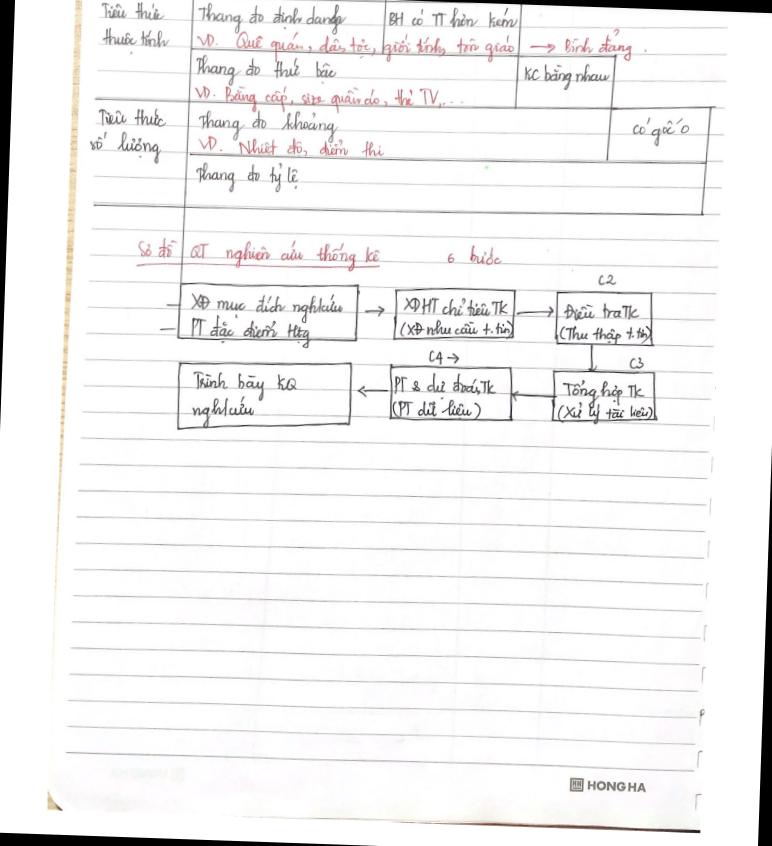 Tiêu thức
thuộc tính
Thang đo định danh
BH có TT hơn kém
VD. Quê quán, dân tộc, giới tính, tôn giáo → Bình đẳng.
Thang đo thứ bậc
KC bằng nhau
VD. Bằng cấp, size quần áo, thẻ TV,...
Tiêu thức
số lượng
Thang đo khoảng
có gốc 0
VD. Nhiệt độ, điểm thi
Thang đo tỷ lệ
Sơ đồ QT nghiên cứu thống kê 6 bước
C2
XĐ mục đích nghiên cứu
PT đặc điểm Htg
XĐHT chỉ tiêu TK
(XĐ nhu cầu t.tin)
Điều tra TK
(Thu thập t.tin)
C4 →
C3
Trình bày KQ
nghiên cứu
PT & dự đoán TK
(PT dữ liệu)
Tổng hợp TK
(Xử lý tài liệu)
HONG HA